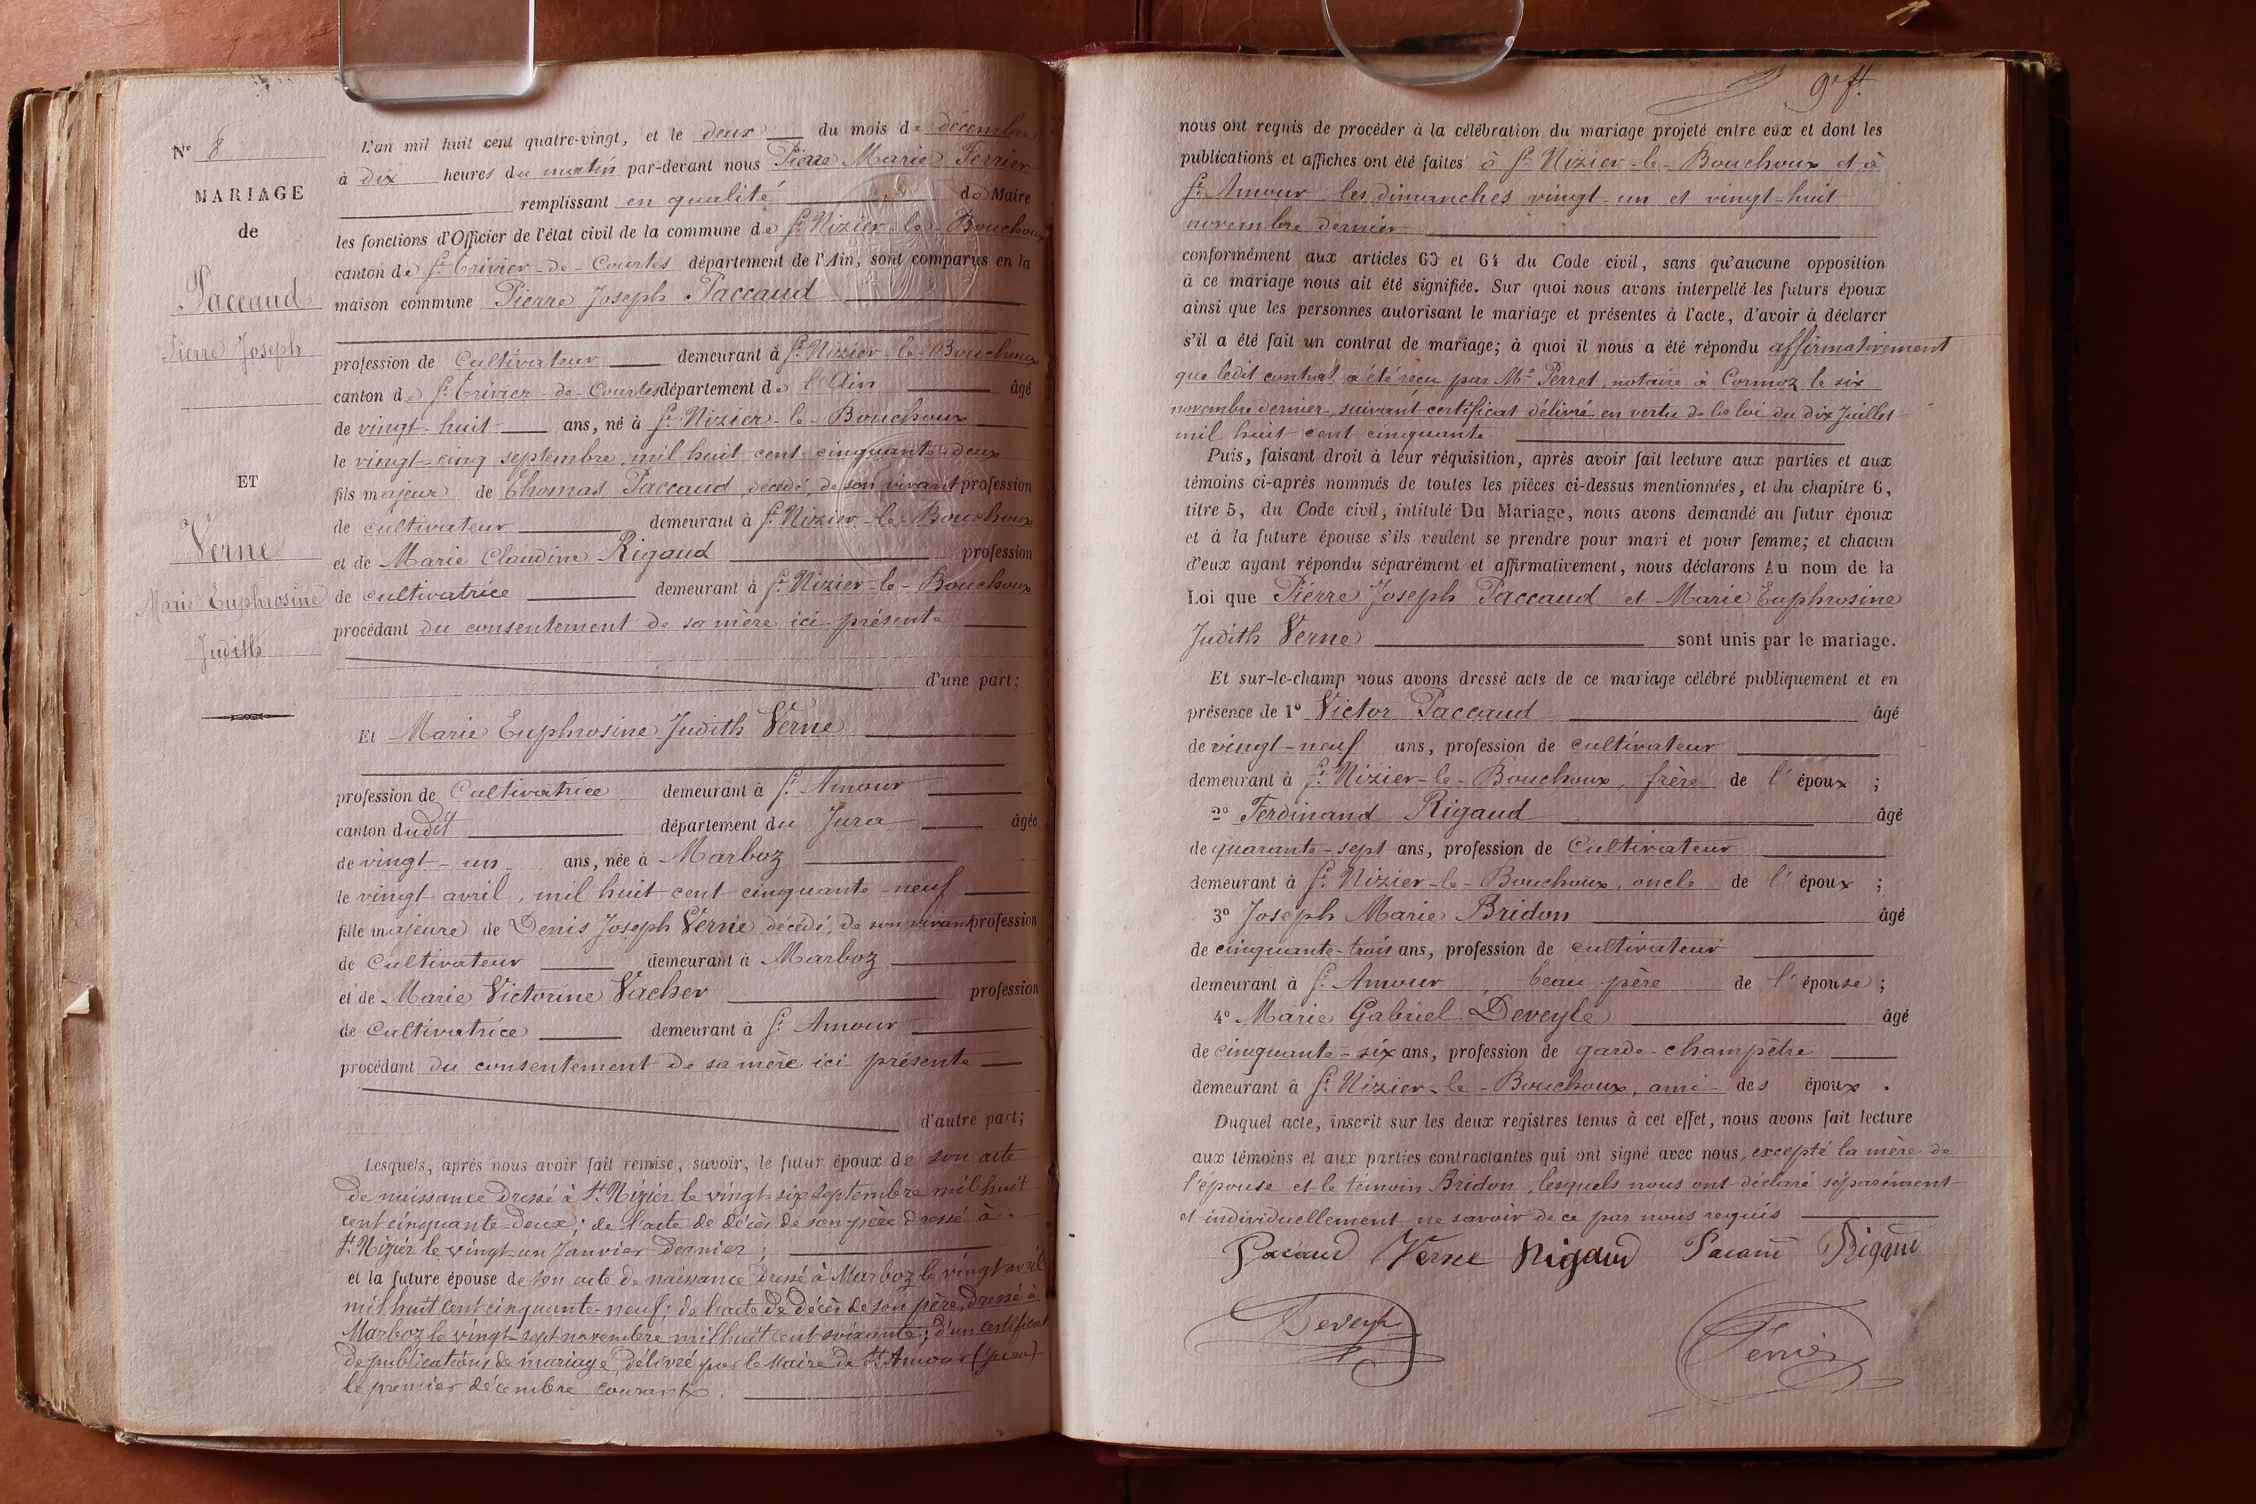 N° 8
MARIAGE
de
Paccaud
Pierre Joseph
ET
Verne
Marie Euphrosine
Judith
L'an mil huit cent quatre-vingt, et le deux du mois de décembre
à dix heures du matin par-devant nous Pierre Marie Ferrier
remplissant en qualité de Maire
les fonctions d'Officier de l'état civil de la commune de St Nizier-le-Bouchoux
canton de St Trivier-de-Courtes département de l'Ain, sont comparus en la
maison commune Pierre Joseph Paccaud
profession de Cultivateur demeurant à St Nizier-le-Bouchoux
canton de St Trivier-de-Courtes département de l'Ain âgé
de vingt-huit ans, né à St Nizier-le-Bouchoux
le vingt-cinq septembre mil huit cent cinquante-deux
fils majeur de Thomas Paccaud, décédé, de son vivant profession
de cultivateur demeurant à St Nizier-le-Bouchoux
et de Marie Claudine Rigaud profession
de cultivatrice demeurant à St Nizier-le-Bouchoux
procédant du consentement de sa mère ici présente
d'une part;
Et Marie Euphrosine Judith Verne
profession de Cultivatrice demeurant à St Amour
canton dudit département du Jura âgée
de vingt-un ans, née à Marboz
le vingt avril, mil huit cent cinquante-neuf
fille majeure de Denis Joseph Verne, décédé, de son vivant profession
de Cultivateur demeurant à Marboz
et de Marie Victorine Vacher profession
de Cultivatrice demeurant à St Amour
procédant du consentement de sa mère ici présente
d'autre part;
Lesquels, après nous avoir fait remise, savoir, le futur époux de son acte
de naissance dressé à St Nizier le vingt-six septembre mil huit
cent cinquante-deux; de l'acte de décès de son père dressé à
St Nizier le vingt-un Janvier dernier;
et la future épouse de son acte de naissance dressé à Marboz le vingt avril
mil huit cent cinquante-neuf; de l'acte de décès de son père, dressé à
Marboz le vingt-sept novembre mil huit cent soixante; d'un certificat
de publications de mariage délivré par le Maire de St Amour (Jura)
le premier décembre courant.
9e ft.
nous ont requis de procéder à la célébration du mariage projeté entre eux et dont les
publications et affiches ont été faites à St Nizier-le-Bouchoux et à
St Amour les dimanches vingt-un et vingt-huit
novembre dernier
conformément aux articles 63 et 64 du Code civil, sans qu'aucune opposition
à ce mariage nous ait été signifiée. Sur quoi nous avons interpellé les futurs époux
ainsi que les personnes autorisant le mariage et présentes à l'acte, d'avoir à déclarer
s'il a été fait un contrat de mariage; à quoi il nous a été répondu affirmativement
que ledit contrat a été reçu par Me Perret, notaire à Cormoz le six
novembre dernier, suivant certificat délivré en vertu de la loi du dix Juillet
mil huit cent cinquante
Puis, faisant droit à leur réquisition, après avoir fait lecture aux parties et aux
témoins ci-après nommés de toutes les pièces ci-dessus mentionnées, et du chapitre 6,
titre 5, du Code civil, intitulé Du Mariage, nous avons demandé au futur époux
et à la future épouse s'ils veulent se prendre pour mari et pour femme; et chacun
d'eux ayant répondu séparément et affirmativement, nous déclarons Au nom de la
Loi que Pierre Joseph Paccaud et Marie Euphrosine
Judith Verne sont unis par le mariage.
Et sur-le-champ nous avons dressé acte de ce mariage célébré publiquement et en
présence de 1° Victor Paccaud âgé
de vingt-neuf ans, profession de cultivateur
demeurant à St Nizier-le-Bouchoux, frère de l'époux;
2° Ferdinand Rigaud âgé
de quarante-sept ans, profession de Cultivateur
demeurant à St Nizier-le-Bouchoux, oncle de l'époux;
3° Joseph Marie Bridon âgé
de cinquante-trois ans, profession de cultivateur
demeurant à St Amour, beau père de l'épouse;
4° Marie Gabriel Deveyle âgé
de cinquante-six ans, profession de garde-champêtre
demeurant à St Nizier-le-Bouchoux, ami des époux.
Duquel acte, inscrit sur les deux registres tenus à cet effet, nous avons fait lecture
aux témoins et aux parties contractantes qui ont signé avec nous, excepté la mère de
l'épouse et le témoin Bridon, lesquels nous ont déclaré séparément
et individuellement ne savoir de ce par nous requis
Pacaud Verne Rigaud Pacaud Rigaud
Deveyle Ferrier